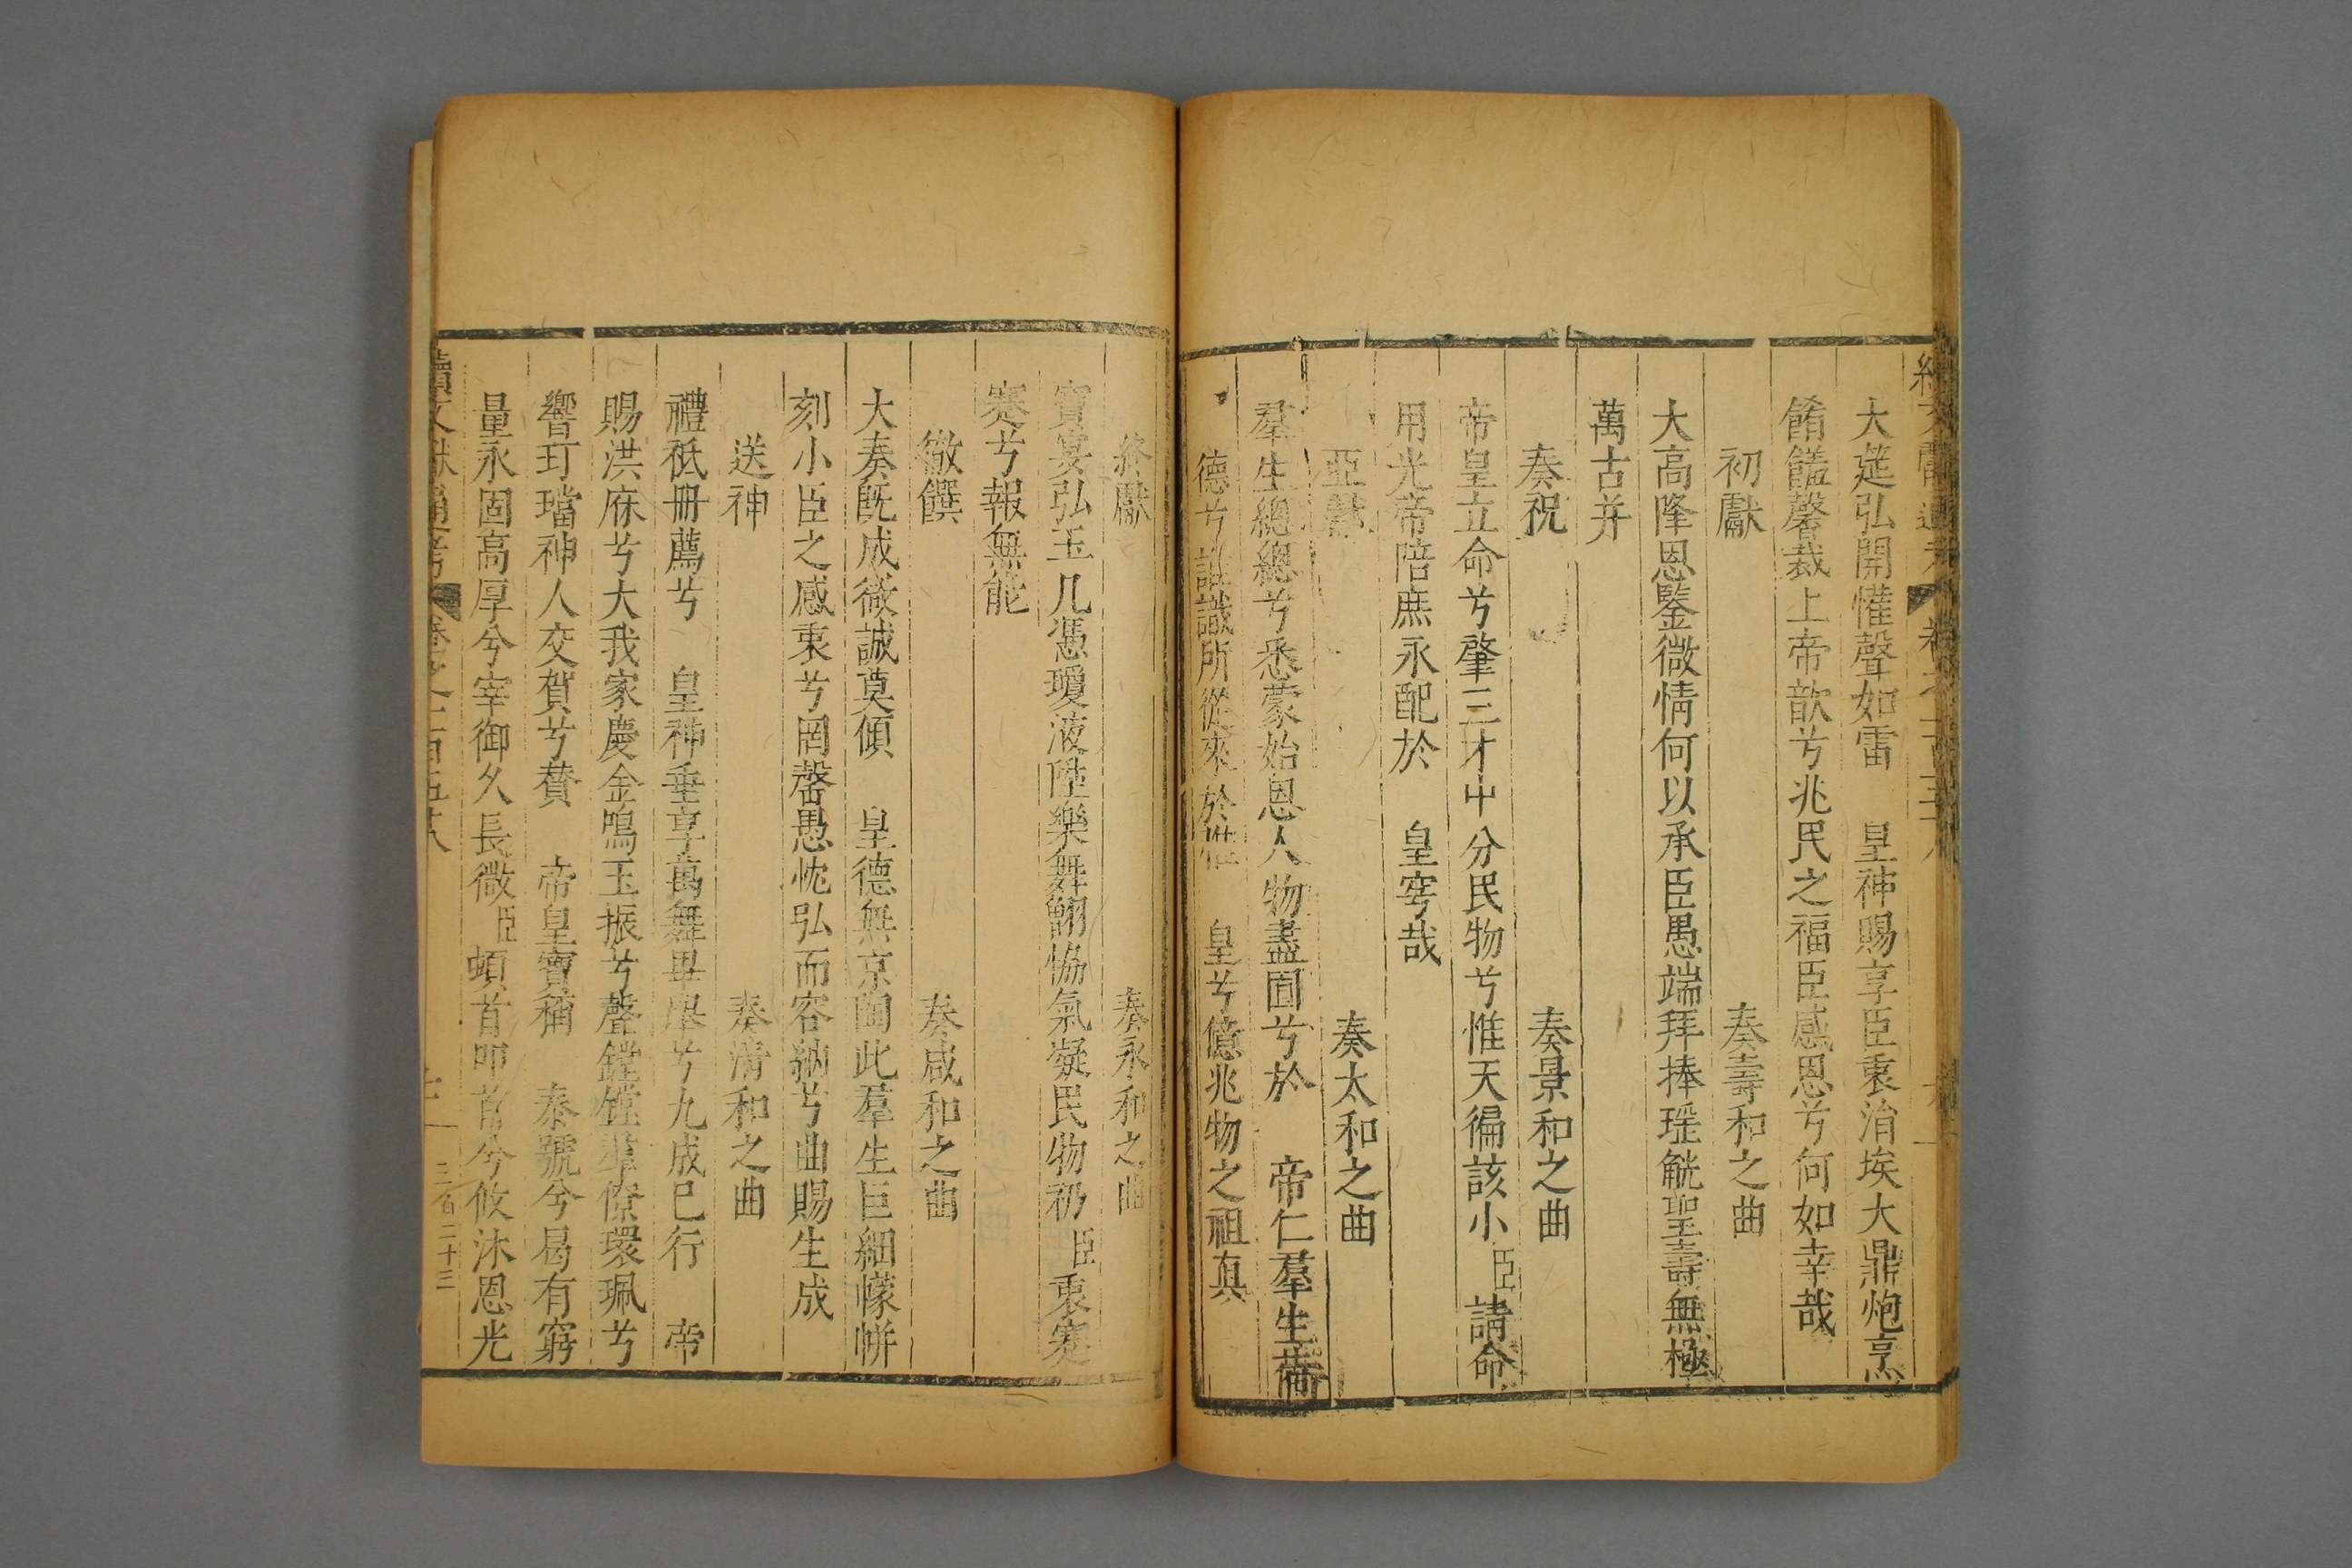 大筵弘開懽聲如雷　皇神賜享臣衷洽埃大鼎炮烹
餚饈馨裁上帝歆兮兆民之福臣感恩兮何如幸哉
初獻　奏壽和之曲
大高降恩鑒微情何以承臣愚端拜捧瑤觥聖壽無極
萬古并
奏祝　奏景和之曲
帝皇立命兮肇三才中分民物兮惟天徧該小臣請命
用光帝陪庶永配於　皇穹哉
亞獻　奏太和之曲
羣生總總兮悉蒙始恩人物盡囿兮於　帝仁羣生荷
德兮誰識所從來於惟　皇兮億兆物之祖真
終獻　奏永和之曲
寶宴弘玉几憑瓊液陞樂舞翩恊氣凝民物礽臣衷蹇
蹇兮報無能
徹饌　奏咸和之曲
大奏旣成微誠莫傾　皇德無京陶此羣生巨細幪帡
刻小臣之感衷兮罔罄愚忱弘而容納兮曲賜生成
送神　奏清和之曲
禮祗冊薦兮　皇神垂享萬舞畢舉兮九成已行　帝
賜洪庥兮大我家慶金鳴玉振兮聲鏗鏗羣僚環珮兮
響玎璫神人交賀兮贊　帝皇寶稱　泰號兮曷有窮
量永固高厚兮宰御久長微臣頓首叩首兮攸沐恩光
續文獻通考　卷之一百五十八　三百二十三